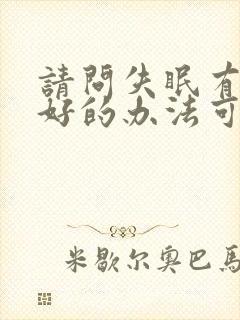 請問失眠有
好的办法可
米歇尔奥巴馬